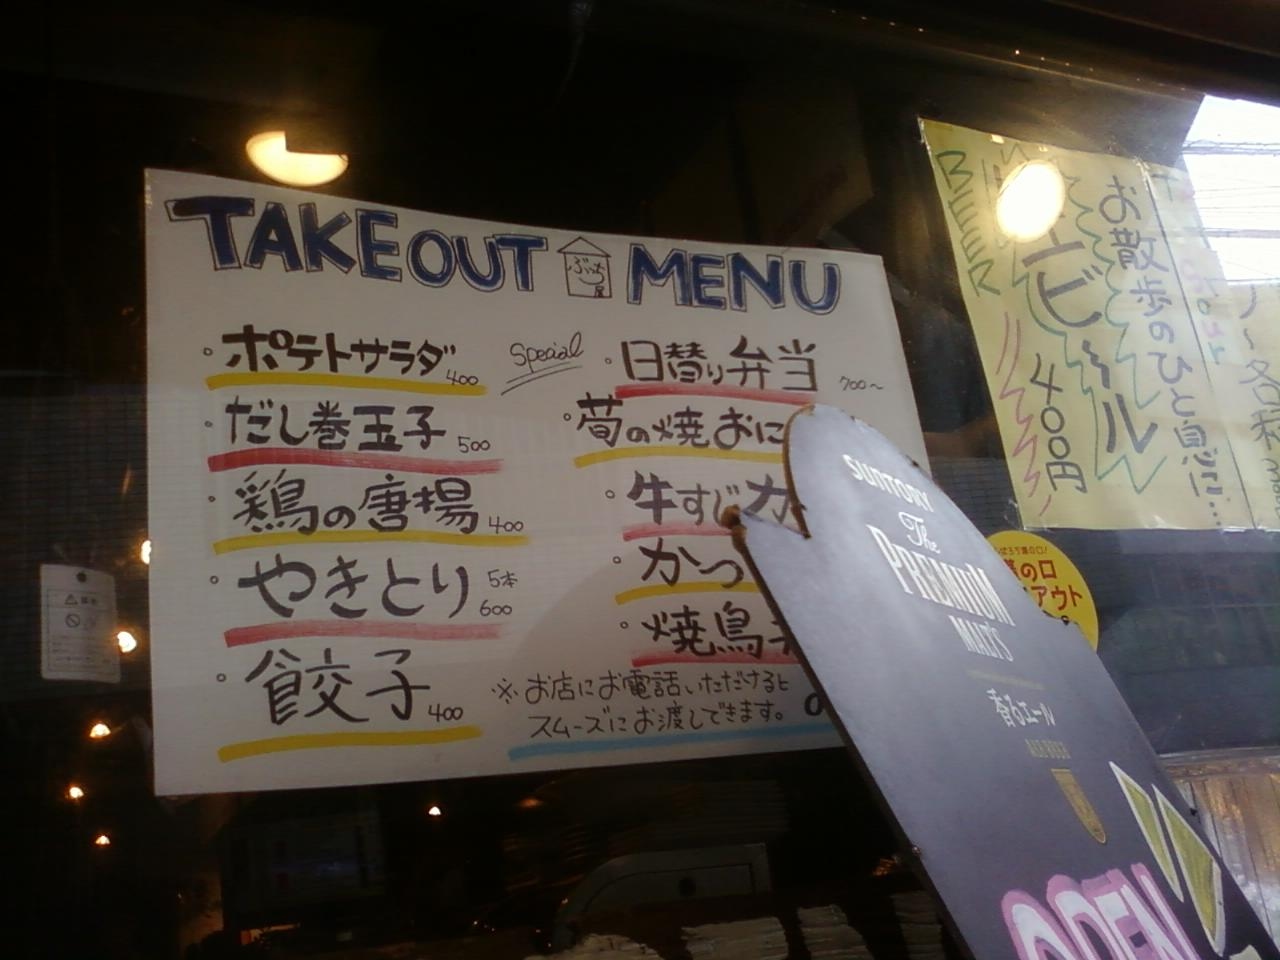 TAKEOUT ぶっち屋 MENU
・ポテトサラダ 400
・だし巻玉子 500
・鶏の唐揚 400
・やきとり 5本 600
・餃子 400
Special
・日替り弁当 700~
・筍の焼おに
・牛すじカ
・かつ
・焼鳥
※お店にお電話いただけると
スムーズにお渡しできます。
SUNTORY
The
PREMIUM
MALT'S
香るエール
OPEN
お散歩のひと息に…
ビール
400円
BEER
の口
アウト